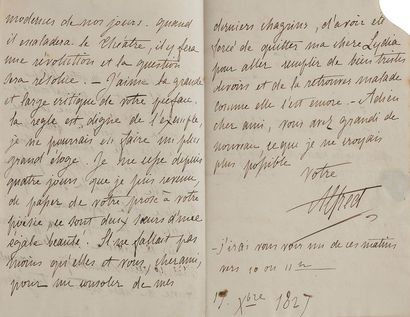 modernes de nos jours. quand
il escaladera le théâtre, il y fera
une révolution et la question
sera résolue. — J'aime la grande
et large critique de votre préface.
la règle est digne de l'exemple,
je ne pourrais en faire un plus
grand éloge. Je me depuis
quatre jours que je suis revenu,
de papier de votre prose à votre
poésie, ce sont deux sœurs d'une
égale beauté. Il ne fallait pas
moins qu'elles et vous, cher ami,
pour me consoler de mes
derniers chagrins, d'avoir été
forcé de quitter ma chère Lydia
pour aller remplir de bien tristes
devoirs et de la retrouver malade
comme elle l'est encore. — Adieu
cher ami, vous avez grandi de
nouveau, ce que je ne croyais
plus possible
Votre
Alfred
— j'irai vous voir un de ces matins
vers 10 ou 11 h
17. Xbre 1827